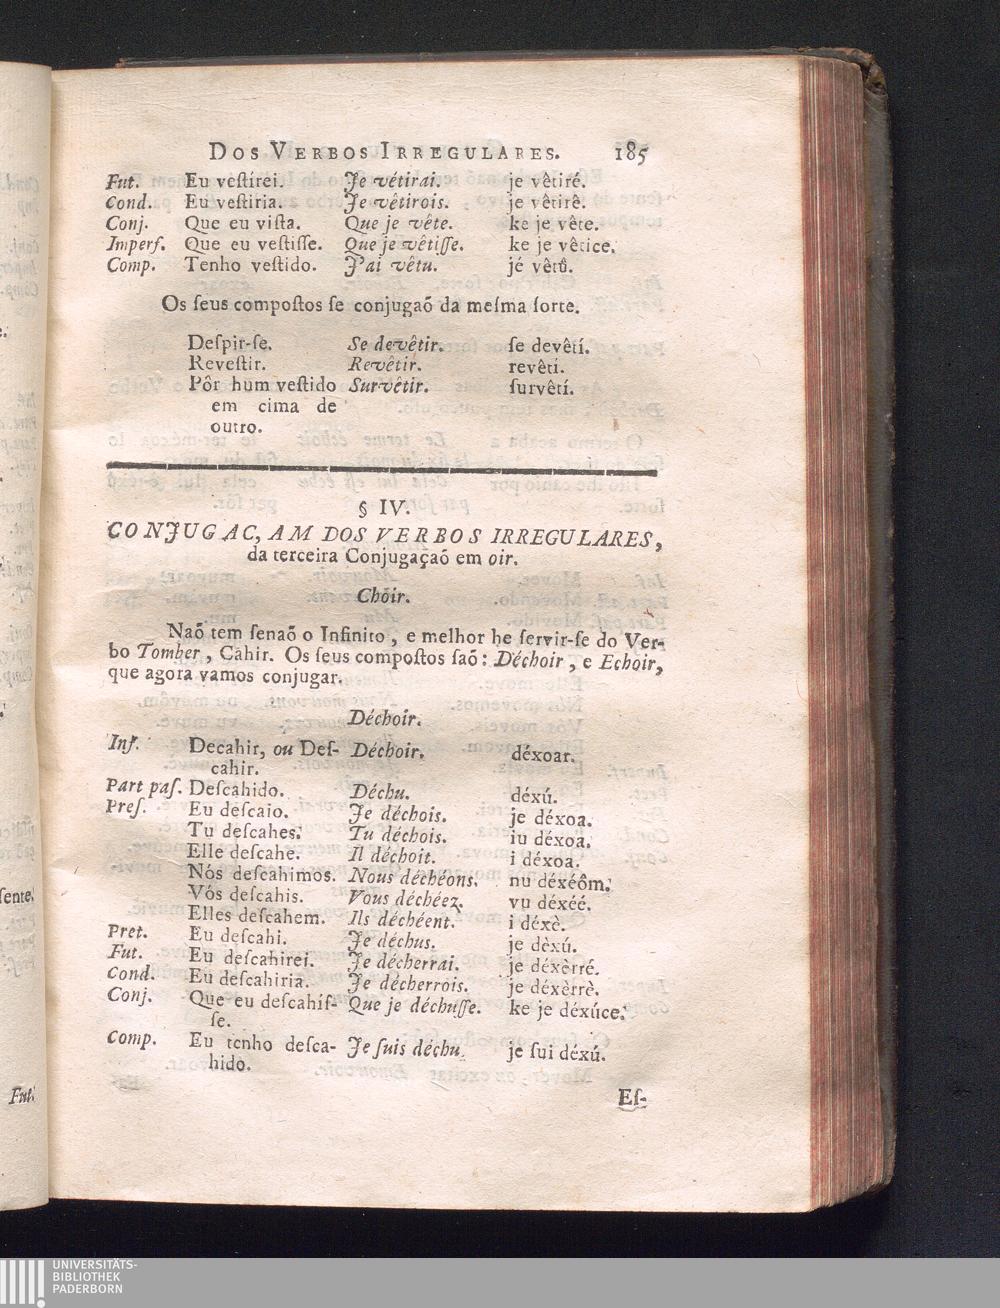 DOS VERBOS IRREGULARES. 185
Fut. Eu veſtirei. Je vétirai. je vêtiré.
Cond. Eu veſtiria. Je vêtirois. je vêtirê.
Conj. Que eu viſta. Que je vête. ke je vête.
Imperf. Que eu veſtiſſe. Que je vêtiſſe. ke je vêtice.
Comp. Tenho veſtido. J'ai vêtu. jé vêtû.
Os ſeus compoſtos ſe conjugaõ da meſma ſorte.
Deſpir-ſe. Se devêtir. ſe devêtí.
Reveſtir. Revêtir. revêti.
Pôr hum veſtido Survêtir. ſurvêtí.
em cima de
outro.
§ IV.
CONJUGAC,AM DOS VERBOS IRREGULARES,
da terceira Conjugaçaõ em oir.
Choir.
Naõ tem ſenaõ o Infinito, e melhor he ſervir-ſe do Ver-
bo Tomber, Cahir. Os ſeus compoſtos ſaõ: Déchoir, e Echoir,
que agora vamos conjugar.
Déchoir.
Inf. Decahir, ou Deſ- Déchoir. déxoar.
cahir.
Part paſ. Deſcahido. Déchu. déxú.
Preſ. Eu deſcaio. Je déchois. je déxoa.
Tu deſcahes. Tu déchois. iu déxoa.
Elle deſcahe. Il déchoit. i déxoa.
Nós deſcahimos. Nous déchéons. nu déxéôm.
Vós deſcahis. Vous déchéez. vu déxéé.
Elles deſcahem. Ils déchéent. i déxè.
Pret. Eu deſcahi. Je déchus. je dèxú.
Fut. Eu deſcahirei. Je décherrai. je déxèrré.
Cond. Eu deſcahiria. Je décherrois. je déxèrrè.
Conj. Que eu deſcahiſ- Que je déchuſſe. ke je déxúce.
ſe.
Comp. Eu tenho deſca- Je ſuis déchu. je ſui déxú.
hido.
Eſ-
ſente.
Fut.
UNIVERSITÄTS-
BIBLIOTHEK
PADERBORN